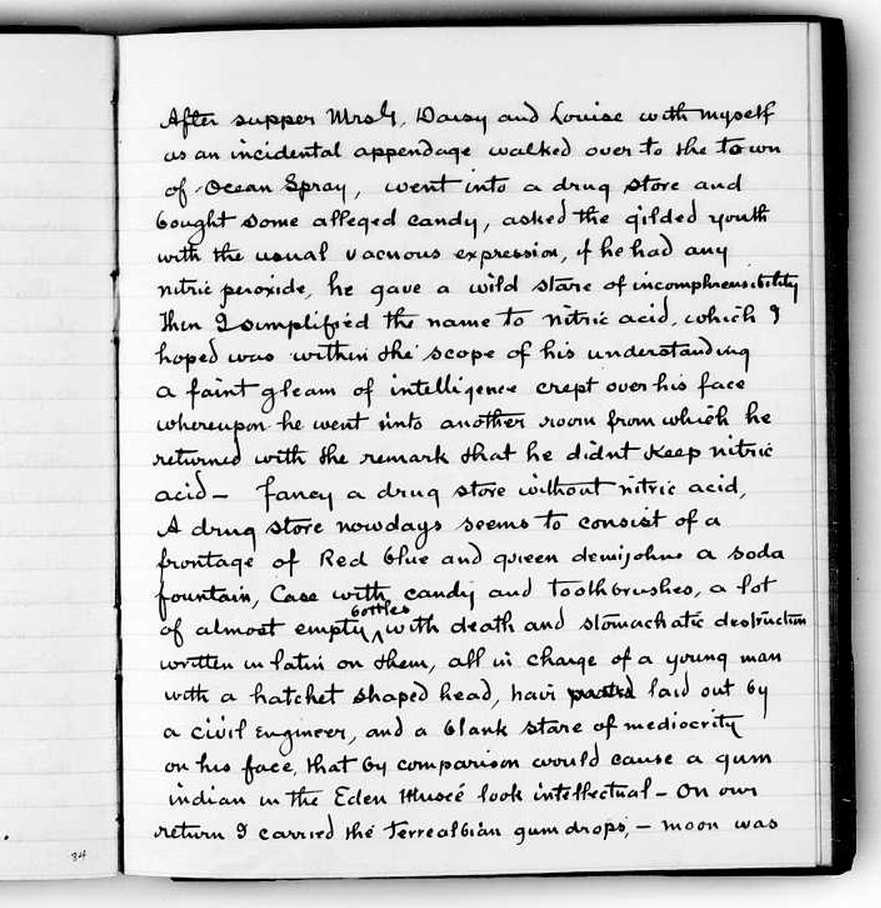 After supper MrsG, Daisy and Louise with myself
as an incidental appendage walked over to the town
of Ocean Spray, went into a drug store and
bought some alleged candy, asked the gilded youth
with the usual vacuous expression, if he had any
nitric peroxide, he gave a wild stare of incomphrensibility
Then I simplified the name to nitric acid, which I
hoped was within the scope of his understanding
a faint gleam of intelligence crept over his face
whereupon he went into another room from which he
returned with the remark that he didnt keep nitric
acid — fancy a drug store without nitric acid,
A drug store nowdays seems to consist of a
frontage of Red blue and green demijohns a soda
fountain, Case with candy and toothbrushes, a lot
of almost empty bottles with death and stomachatic destruction
written in latin on them, all in charge of a young man
with a hatchet shaped head, hair laid out by
a civil Engineer, and a blank stare of mediocrity
on his face, that by comparison would cause a gum
indian in the Eden Museé look intellectual — On our
return I carried the Terrealbian gum drops, — moon was
34